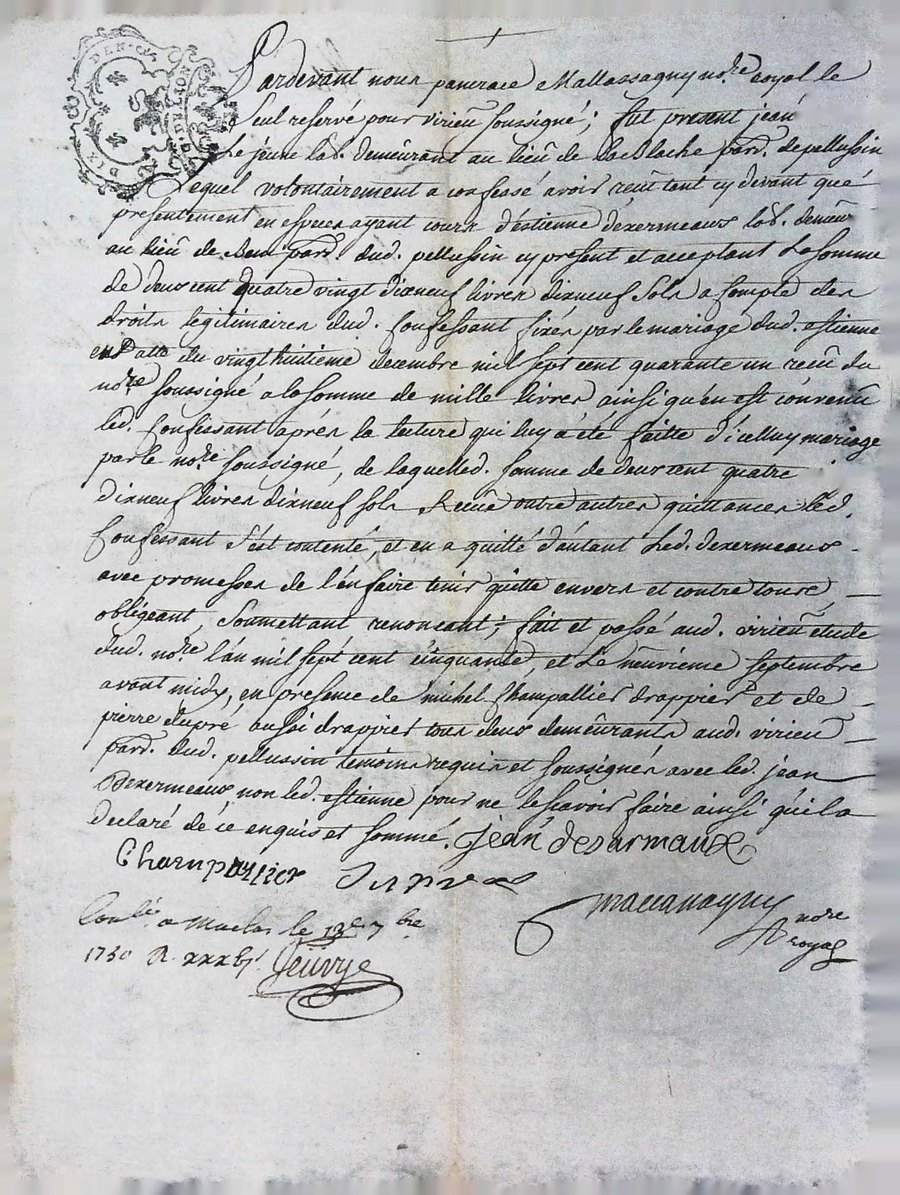 DIX DEN.
GN. DE LION
Pardevant nous pancrace Mallassagny no.re royal le
Seul reservé pour virieu soussigné; fut present jean
Le jeune lab. demeurant au lieu de la Blache parr. de pellussin
Lequel volontairement a confessé avoir recu tant cy devant que
presentement en especes ayant cours d'estienne dexermeaux lab. demeur
au lieu de parr. dud. pellussin cy present et acceptant La somme
de deux cent quatre vingt dixneuf livres dixneuf sols a compte des
droits legitimaires dud. Confessant fixés par le mariage dud. estienne
en datte du vingthuitieme decembre mil sept cent quarante un recu du
no.re soussigné a la somme de mille livres ainsi qu'en est convenu
led. Confessant après la lecture qui luy a été faitte d'icelluy mariage
par le no.re soussigné, de laquelle d. somme de deux cent quatre
dixneuf livres dixneuf sols Recüe outre autres quittances led.
Confessant s'est contenté, et en a quitté d'autant Led. dexermeaux
avec promesses de l'en faire tenir quitte envers et contre tous,
obligeant, Soumettant renonçant; fait et passé aud. virieu etude
dud. no.re l'an mil sept cent cinquante, et Le neuvieme septembre
avant midy, en presence de michel Champallier drappier et de
pierre dupré aussi drappier tous deux demeurants aud. virieu
parr. dud. pellussin temoins requis et soussignés avec led. jean
Dexermeaux, non led. estienne pour ne le sçavoir faire ainsi qu'il a
declaré de ce enquis et sommé. jean desarmaux
Champallier Dupré
no.re
royal
Con.lé a Maclas le 13e 7bre
1750 R.